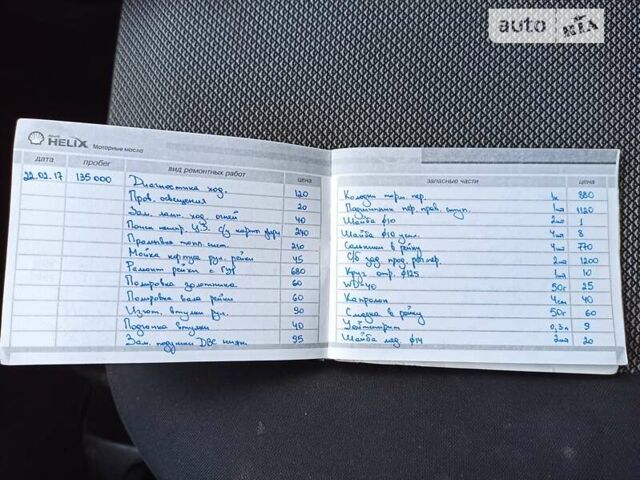 auto RIA
HELIX Моторные масла
дата пробег вид ремонтных работ цена
22.02.17 135 000 Диагностика ход. 120
Пров. освещения 20
Зам. ламп. ход. огней 40
Поиск неиспр. Ц.З. с/у карты двери 240
Промывка топл. сист. 210
Мойка корпуса рул. рейки 45
Ремонт рейки с ГУР 680
Полировка золотника 60
Полировка вала рейки 60
Изгот. втулки рул. 90
Подгонка втулки 40
Зам. подушки ДВС нижн. 95
запасные части цена
Колодки торм. пер. к 880
Подшипник пер. прав. ступ. 1шт 1120
Шайба ф10 2шт 1
Шайба ф10 усил. 4шт 8
Сальники в рейку 4шт 770
С/б зад. прод. рыч. пер. 2шт 1200
Круг отр. ф125 1шт 10
WD-40 50г 25
Капролон 4см 40
Смазка в рейку 50г 60
Уайтспирит 0,3л 9
Шайба мед. ф14 2шт 20